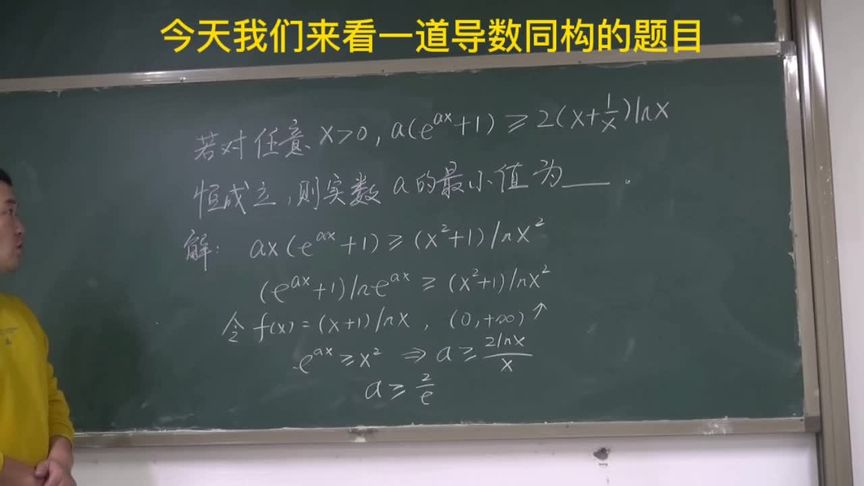 今天我们来看一道导数同构的题目
若对任意 x>0, a(e^{ax}+1) ≥ 2(x+\frac{1}{x})lnx
恒成立,则实数 a 的最小值为___。
解: ax(e^{ax}+1) ≥ (x²+1)lnx²
(e^{ax}+1)lne^{ax} ≥ (x²+1)lnx²
令 f(x)=(x+1)lnx , (0,+∞)↑
e^{ax} ≥ x² ⇒ a ≥ \frac{2lnx}{x}
a ≥ \frac{2}{e}